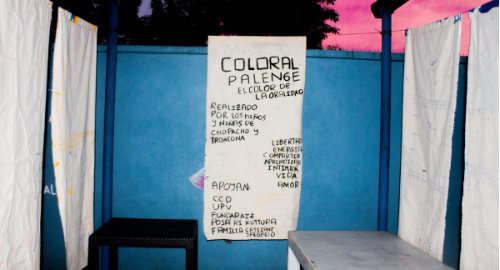 COLORAL
PALENGE
EL COLOR DE
LA ORALIDAD
REALIZADO
POR LOS NIÑOS
Y NIÑAS DE
CHOPACHO Y
TRONCONA
LIBERTAD
ENERGIA
COMPARTIR
INTIMIDA
VIDA
AMOR
APOYAN:
CCD
UPV
FUNDARAIZ
POSA RI KUTTURA
FAMILIA CASSIANI
SALGADO